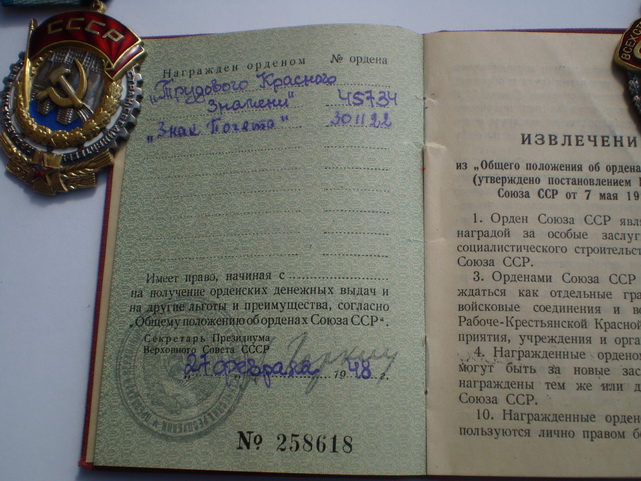 СССР
Награжден орденом № ордена
„Трудового Красного
Знамени" 45734
„Знак Почета" 301122
Имеет право, начиная с
на получение орденских денежных выдач и
на другие льготы и преимущества, согласно
„Общему положению об орденах Союза ССР".
Секретарь Президиума
Верховного Совета СССР
„27 февраля 1948 г.
№ 258618
ВСЕХ
ИЗВЛЕЧЕНИ
из „Общего положения об ордена
(утверждено постановлением
Союза ССР от 7 мая 19
1. Орден Союза ССР явл
наградой за особые заслуг
социалистического строительс
Союза ССР.
3. Орденами Союза ССР
ждаться как отдельные гра
войсковые соединения и во
Рабоче-Крестьянской Красной
приятия, учреждения и орга
4. Награжденные ордено
могут быть за новые зас
награждены тем же или д
Союза ССР.
10. Награжденные орден
пользуются лично правом бе